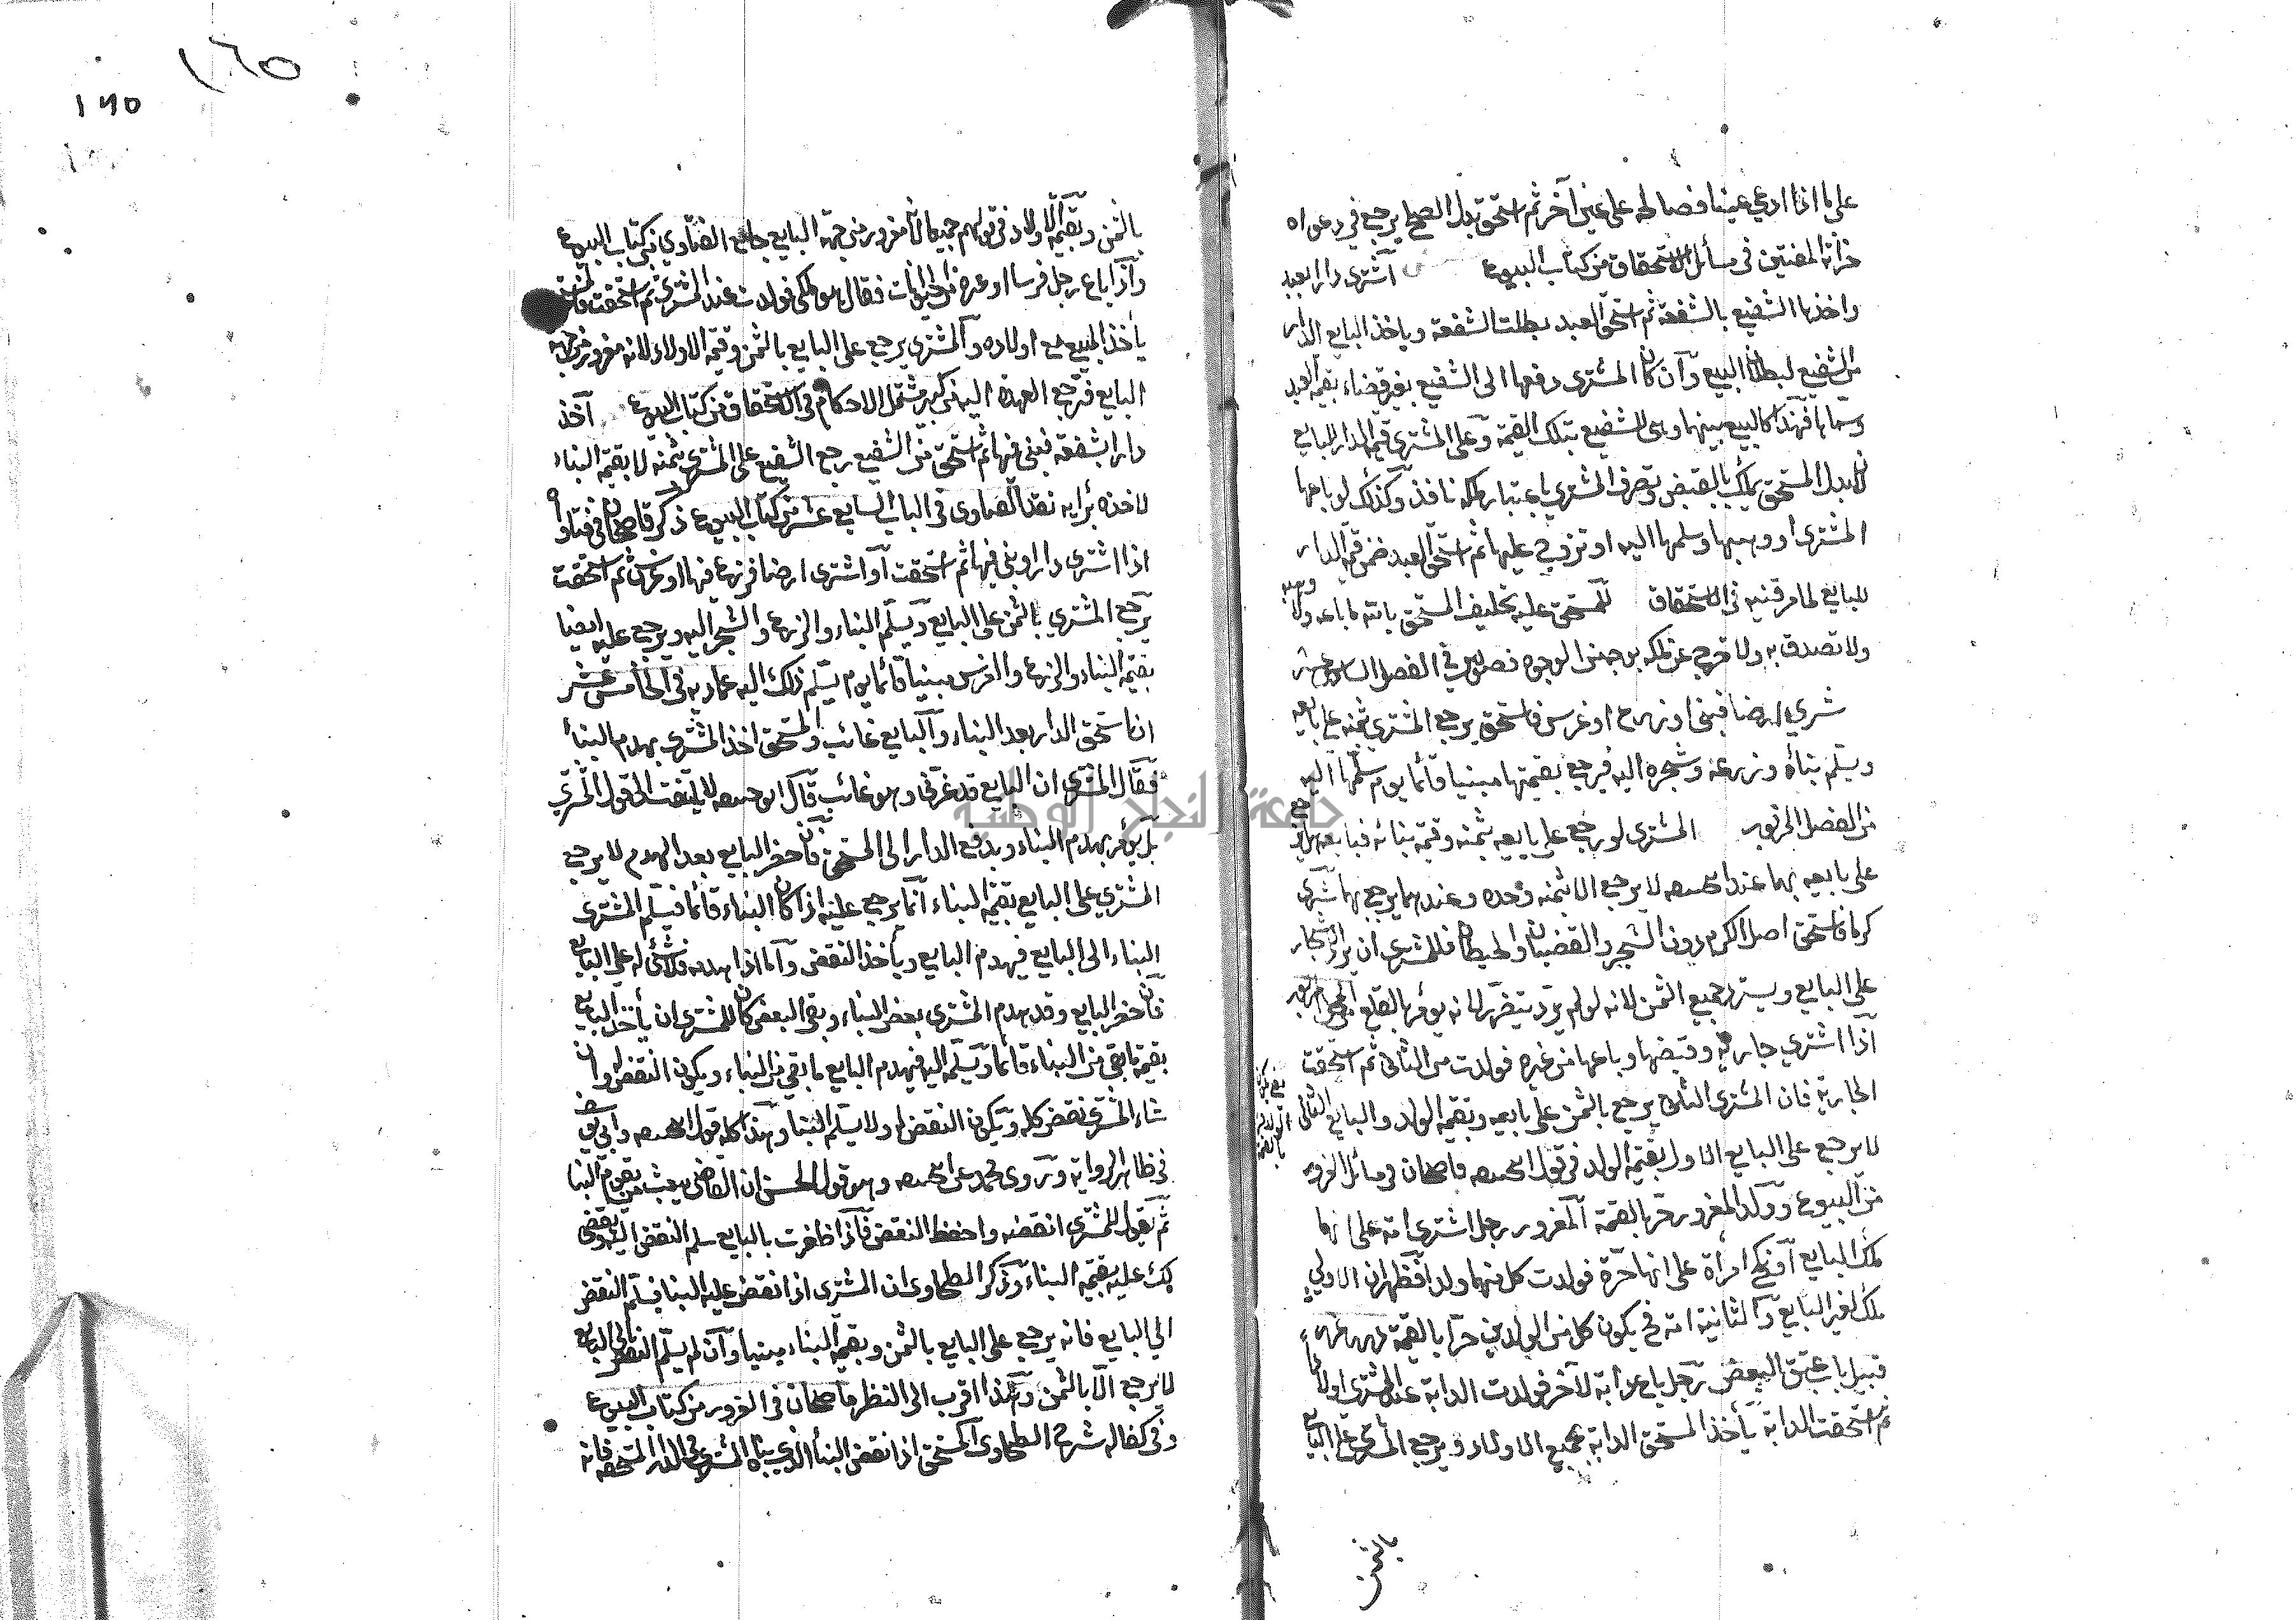 على ما اذا ادعي عينا فصالحه على عين آخر ثم استحق بدل الصلح يرجع في دعواه
خزانة المفتين في مسائل الاستحقاق من كتاب البيوع اشترى دارا بعبد
واخذها الشفيع بالشفعة ثم استحق العبد بطلت الشفعة وياخذ البايع الدار
من الشفيع لبطلان البيع وان كان المشترى دفعها الى الشفيع بغير قضاء بقيمة العبد
وسماها فهذا كالبيع بينهما وهى للشفيع بتلك القيمة وعلى المشترى قيمة الدار للبايع
لان بدل المستحق يملك بالقبض وتصرف المشترى باعتبار ملكه نافذ وكذلك لو باعها
المشترى او وهبها وسلمها اليه او تزوج عليها ثم استحق العبد ضمن قيمة الدار
للبايع لما مر قنيه في الاستحقاق للمستحق عليه تحليف المستحق بالله ما باعه ولا وهبه
ولا تصدق به ولا خرج عن ملكه بوجه من الوجوه فصولين في الفصل السادس عشر
شرى ارضا فبنى او زرع او غرس فاستحق يرجع المشترى بثمنه على بايعه
ويسلم بناؤه وزرعه وشجره اليه فيرجع بقيمتها مبنيا قائما يوم سلمها اليه
من الفصل المزبور المشترى لو رجع على بايعه بثمنه وقيمة بنائه فبايعه هل يرجع
على بايعه بهما عند ابى حنيفه لا يرجع الا بثمنه وحده وعندهما يرجع بهما شرى
كرما فاستحق اصل الكرم دون الشجر والقضبان والحيطان فللمشترى ان يرد الاشجار
على البايع ويسترد جميع الثمن لانه لو لم يرد يتضرر لانه يؤمر بالقلع
اذا اشترى جارية وقبضها وباعها من غيره فولدت من الثانى ثم استحقت
الجارية فان المشترى الثانى يرجع بالثمن على بايعه وبقيمة الولد والبايع الثانى
لا يرجع على البايع الاول بقيمة الولد في قول ابى حنيفه قاضيخان في مسائل الغرور
من البيوع وولد المغرور حر بالقيمة المغرور رجل اشترى امة على انها
ملك البايع او نكح امرأة على انها حرة فولدت كل منهما ولدا فظهر ان الاولى
ملك لغير البايع والثانية امة فح يكون كل من الولدين حرا بالقيمة درر غرر
قبيل باب عتق البعض رجل باع دابة لآخر فولدت الدابة عند المشترى اولادا
ثم استحقت الدابة يأخذ المستحق الدابة بجميع الاولاد ويرجع المشترى على البايع
بالثمن
١٦٥
١٦٥
بالثمن وبقيمة الاولاد في قولهم جميعا لانه مغرور من جهة البايع جامع الفتاوي في كتاب البيوع
واذا باع رجل فرسا او غيره من الحيوانات فقال هو ملكى فولدت عند المشترى ثم استحقت فالمستحق
يأخذ المبيع مع اولاده والمشترى يرجع على البايع بالثمن وقيمة الاولاد لانه مغرور من جهة
البايع فترجع العهدة اليه مشتمل الاحكام في الاستحقاق من كتاب البيوع اخذ
دارا بشفعة فبنى فيها ثم استحق من الشفيع رجع الشفيع على المشترى بثمنه لا بقيمة البناء
لاخذه برأيه نقد الفتاوى في الباب السابع عشر من كتاب البيوع ذكر قاضيخان في فتاواه
اذا اشترى دارا وبنى فيها ثم استحقت او اشترى ارضا فزرع فيها او غرس ثم استحقت
يرجع المشترى بالثمن على البايع ويسلم البناء والزرع والشجر اليه ويرجع عليه ايضا
بقيمة البناء والزرع والغرس مبنيا قائما يوم يسلم ذلك اليه عمادية في الخامس عشر
ان استحق الدار بعد البناء والبايع غائب والمستحق اخذ المشترى بهدم البناء
فقال المشترى ان البايع قد غرنى وهو غائب قال ابو حنيفه لا يلتفت الى قول المشترى
بل يؤمر بهدم البناء ويدفع الدار الى المستحق فان حضر البايع بعد الهدم لا يرجع
المشترى على البايع بقيمة البناء انما يرجع عليه اذا كان البناء قائما فيسلم المشترى
البناء الى البايع فيهدم البايع ويأخذ النقض واما اذا هدمه فلا شئ له على البايع
فان حضر البايع وقد هدم المشترى بعض البناء وبقى البعض كان للمشترى ان يأخذ البايع
بقيمة ما بقى من البناء قائما ويسلمه اليه فيهدم البايع ما بقى من البناء ويكون النقض له وان
شاء المشترى نقض كله ويكون النقض له ولا يسلم البناء وهذا كله قول ابى حنيفه وابى يوسف
في ظاهر الرواية وروى محمد عن ابى حنيفه وهو قول الحسن ان القاضى يبعث من يقوم البناء
ثم يقول للمشترى انقضه واحفظ النقض فاذا ظفرت بالبايع سلم النقض اليه ويقضى
لك عليه بقيمة البناء وذكر الطحاوى ان المشترى اذا نقض عليه البناء فسلم النقض
الى البايع فانه يرجع على البايع بالثمن وبقيمة البناء مبنيا وان لم يسلم النقض الى البايع
لا يرجع الا بالثمن وهذا اقرب الى النظر قاضيخان في الغرور من كتاب البيوع
وفى كفالة شرح الطحاوى المستحق اذا نقض البناء الذى بناه المشترى في الدار المستحقة فانه
جامعة النجاح الوطنية